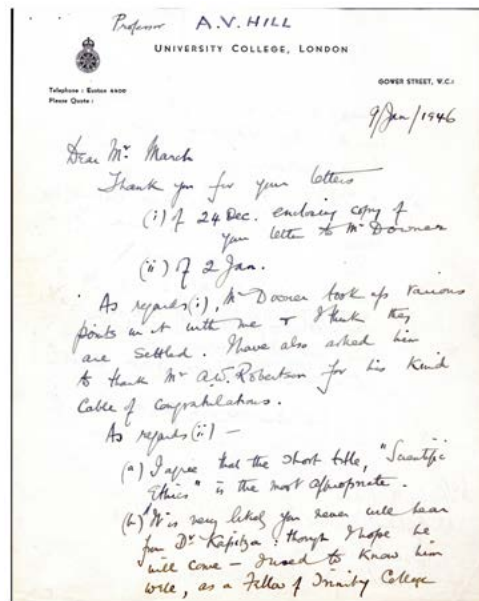 Professor A.V. HILL
UNIVERSITY COLLEGE, LONDON
GOWER STREET, W.C.1
Telephone : Euston 4400
Please Quote :
9/Jan/1946
Dear Mr March
Thank you for your letters
(i) of 24 Dec. enclosing copy of
your letter to Mr Downer
(ii) of 2 Jan.
As regards (i), Mr Downer took up various
points in it with me & I think they
are settled. I have also asked him
to thank Mr A.W. Robertson for his kind
Cable of Congratulations.
As regards (ii) —
(a) I agree that the short title, "Scientific
Ethics" is the most appropriate.
(b) It is very likely you never will hear
from Dr Kapitza : though I hope he
will come — I used to know him
well, as a Fellow of Trinity College